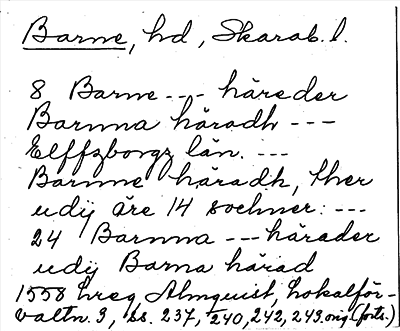 Barne, hd, Skarab. l.
8 Barne --- häreder
Barnna häradh ---
Elffzborgz län. ---
Barnne häradh, ther
udij äre 14 sochner: ---
24 Barnna --- härader
udij Barna härad
1558 hreg Almquist, Lokalför-
valtn. 3, ss. 237, 240, 242, 243. orig (forts.)